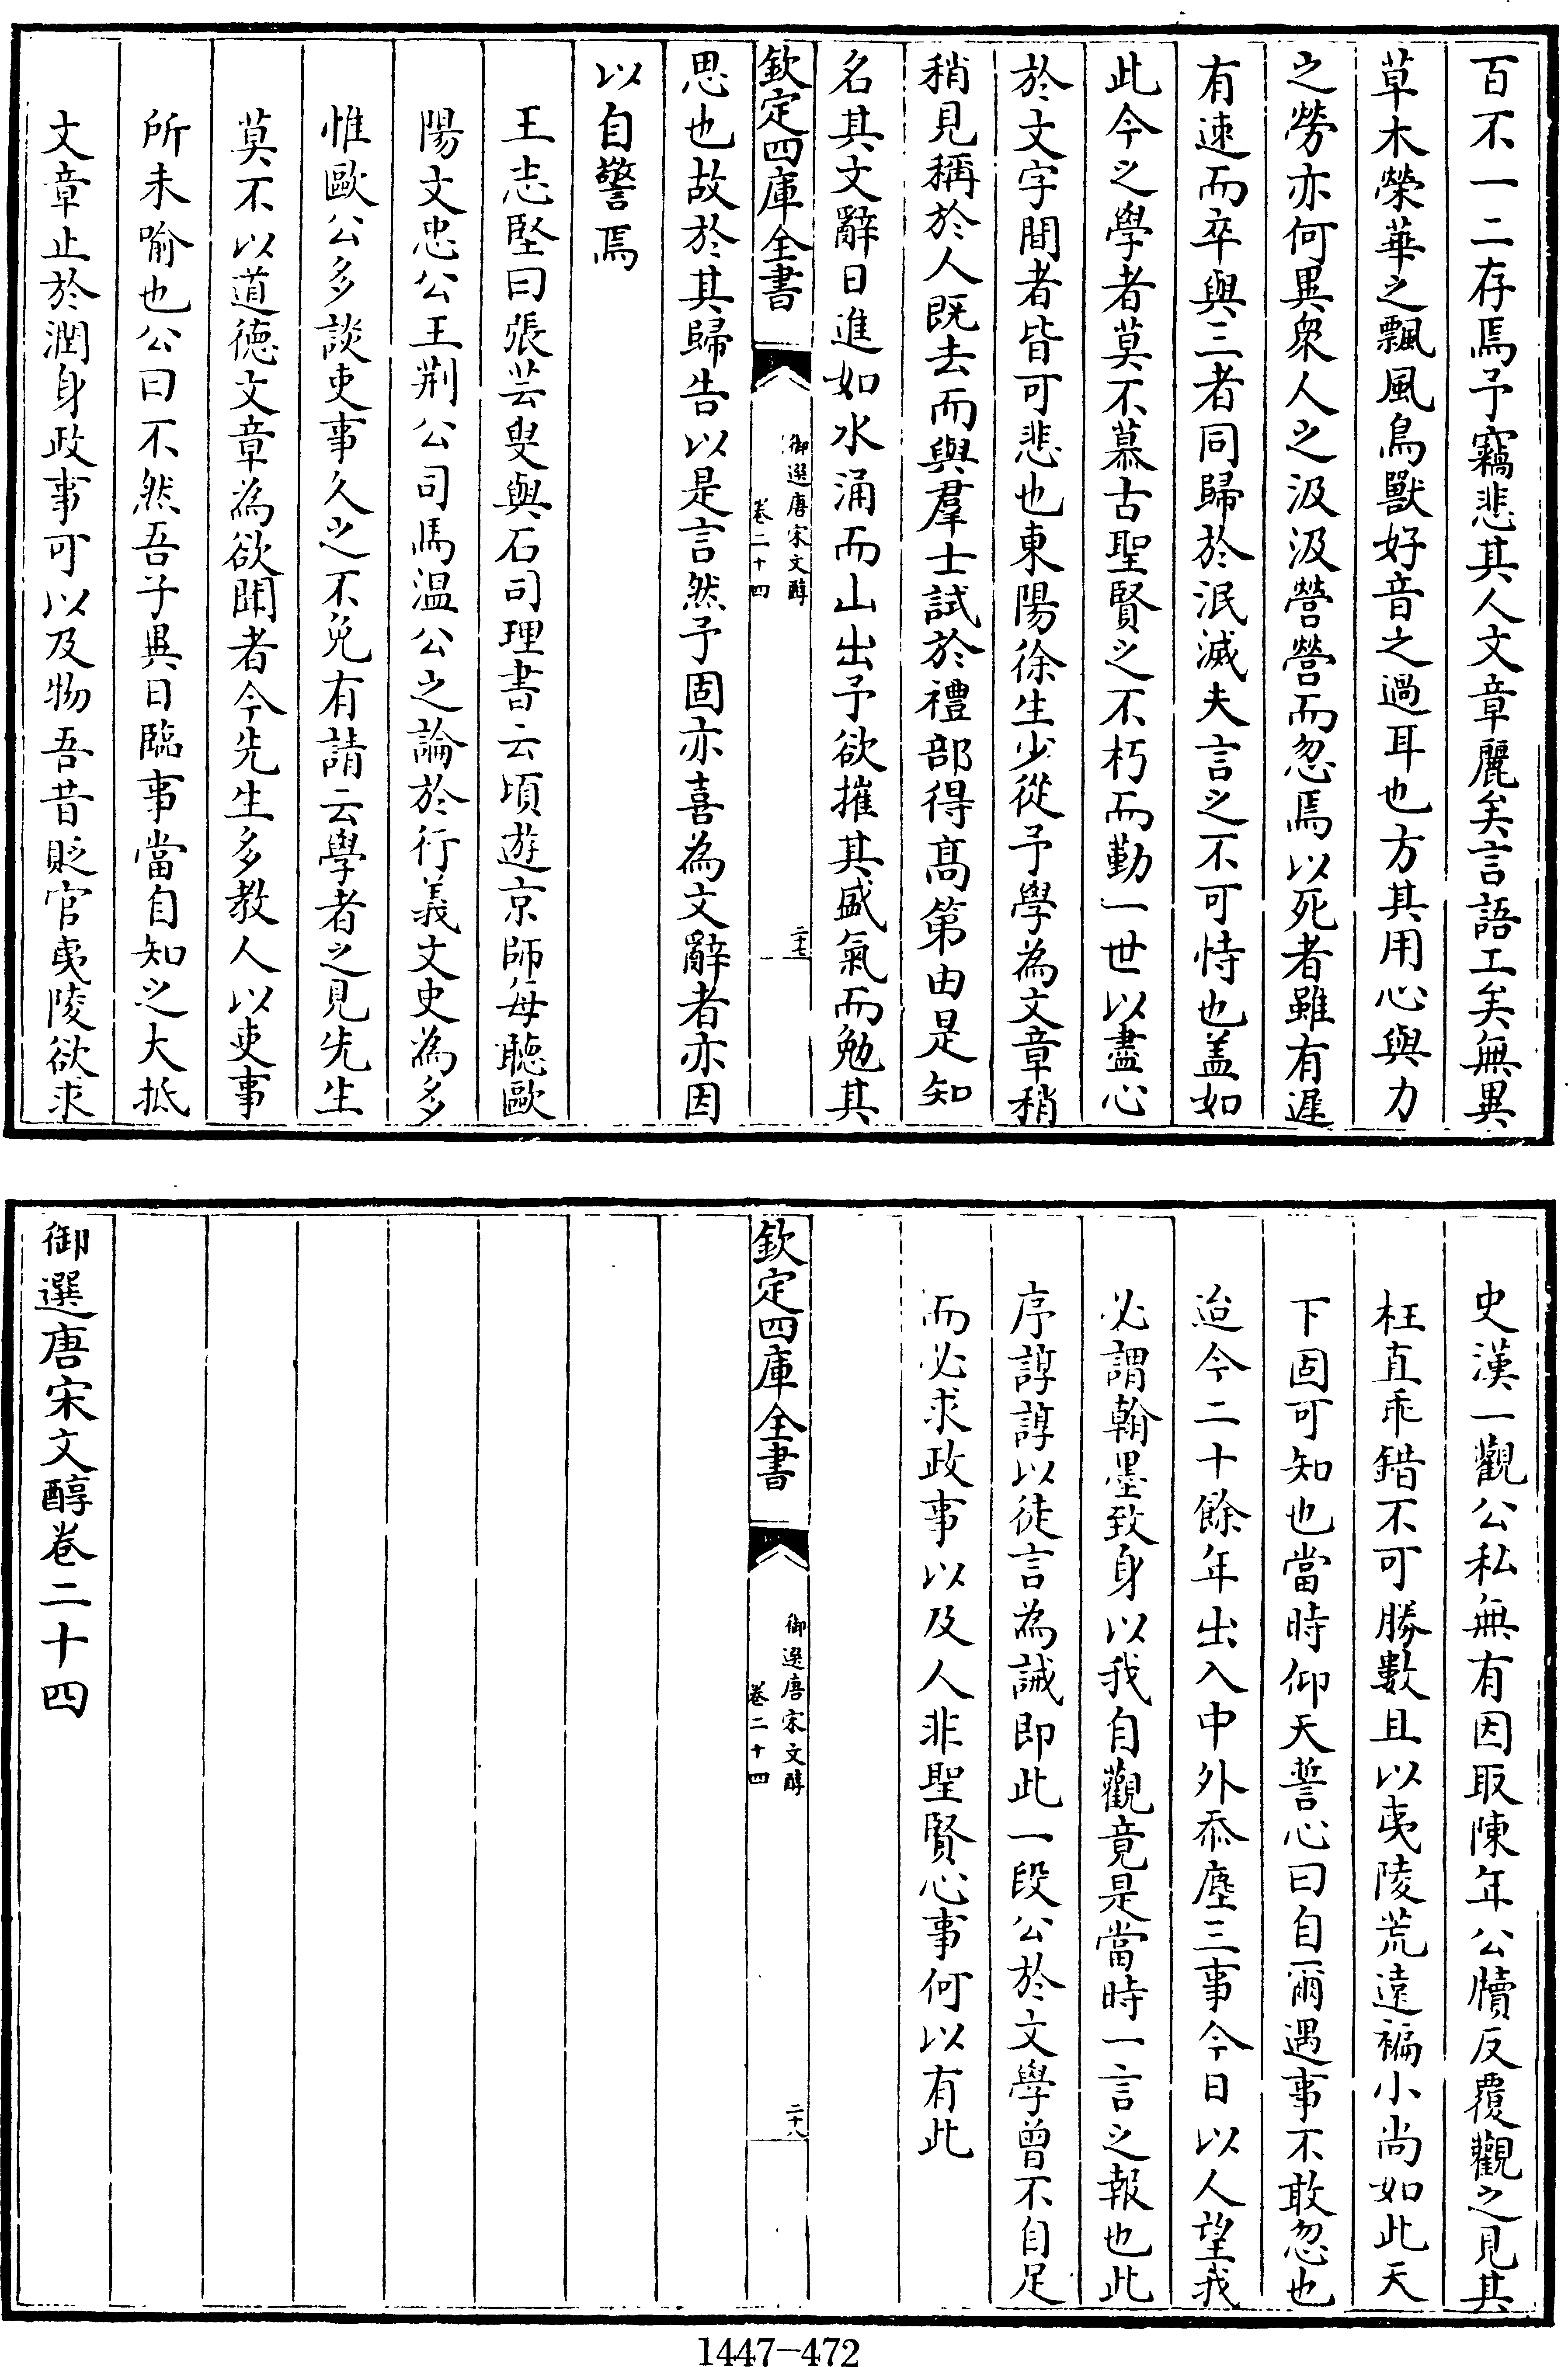 百不一二存焉予竊悲其人文章麗矣言語工矣無異
草木榮華之飄風鳥獸好音之過耳也方其用心與力
之勞亦何異衆人之汲汲營營而忽焉以死者雖有遲
有速而卒與三者同歸於泯滅夫言之不可恃也盖如
此今之學者莫不慕古聖賢之不朽而勤一世以盡心
於文字間者皆可悲也東陽徐生少從予學為文章稍
稍見稱於人既去而與羣士試於禮部得髙第由是知
名其文辭日進如水涌而山出予欲摧其盛氣而勉其
欽定四庫全書
御選唐宋文醇
卷二十四
二十七
思也故於其歸告以是言然予固亦喜為文辭者亦因
以自警焉
王志堅曰張芸叟與石司理書云頃遊京師每聽歐
陽文忠公王荆公司馬温公之論於行義文史為多
惟歐公多談吏事久之不免有請云學者之見先生
莫不以道德文章為欲聞者今先生多教人以吏事
所未喻也公曰不然吾子異日臨事當自知之大抵
文章止於潤身政事可以及物吾昔貶官夷陵欲求
史漢一觀公私無有因取陳年公牘反覆觀之見其
枉直乖錯不可勝數且以夷陵荒遠褊小尚如此天
下固可知也當時仰天誓心曰自爾遇事不敢忽也
迨今二十餘年出入中外忝塵三事今日以人望我
必謂翰墨致身以我自觀竟是當時一言之報也此
序諄諄以徒言為誡即此一段公於文學曾不自足
而必求政事以及人非聖賢心事何以有此
欽定四庫全書
御選唐宋文醇
卷二十四
二十八
御選唐宋文醇卷二十四
1447-472